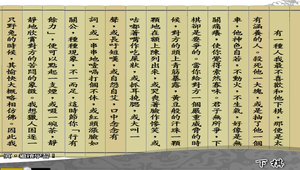 有一種人我最不喜歡和他下棋，那便是太
有涵養的人。殺死他一大塊，或是抽了他一個
車，他神色自若，不動火，不生氣，好像是無
關痛癢，使你覺得索然寡味。君子無所爭，下
棋卻是要爭的。當你給對方一個嚴重威脅的時
候，對方的頭上青筋暴露，黃豆般的汗珠一顆
顆地在額上陳列出來，或哭喪著臉作慘笑，或
咕嘟著嘴作吃屎狀，或抓耳撓腮，或大叫一
聲，或長吁短嘆，或自怨自艾口中念念有
詞，或一串串地噎嗝打個不休，或紅頭漲臉如
關公，種種現象，不一而足，這時節你「行有
餘力」，便可以點起一支煙，或啜一碗茶，靜
靜地欣賞對方的苦悶的象徵。我想獵人困逐一
只野兔的時候，其愉快大概略相仿佛。因此我
下棋